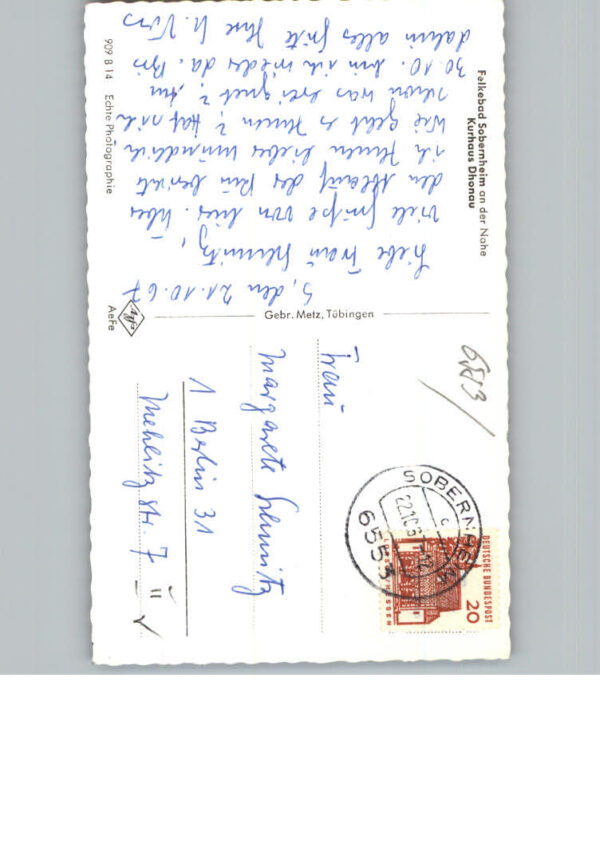 Felkebad Sobernheim an der Nahe
Kurhaus Dhonau
S, den 21.10.67
Liebe Frau Schmitz,
viele Grüße von hier. Über
den Ablauf der Kur berichte
ich Ihnen lieber mündlich
Wie geht es Ihnen? Hat sich
schon was ereignet? Am
30.10. bin ich wieder da. Bis
dahin alles Gute Ihre U.
909 B 14 Echte Photographie
Gebr. Metz, Tübingen
Agfa
AeFe
6553
SOBERNHEIM
22.10.67
6553
DEUTSCHE BUNDESPOST
20
Frau
Margarete Schmitz
1 Berlin 31
Mehlitzstr. 7 II